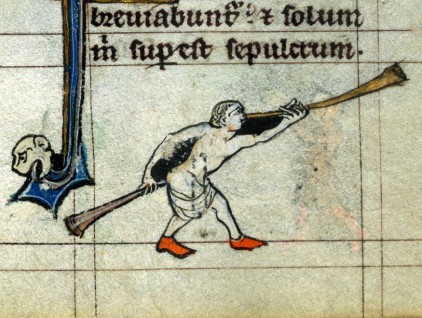 breviabunt᷑ ⁊ solum
m̄ supest sepulcrum·